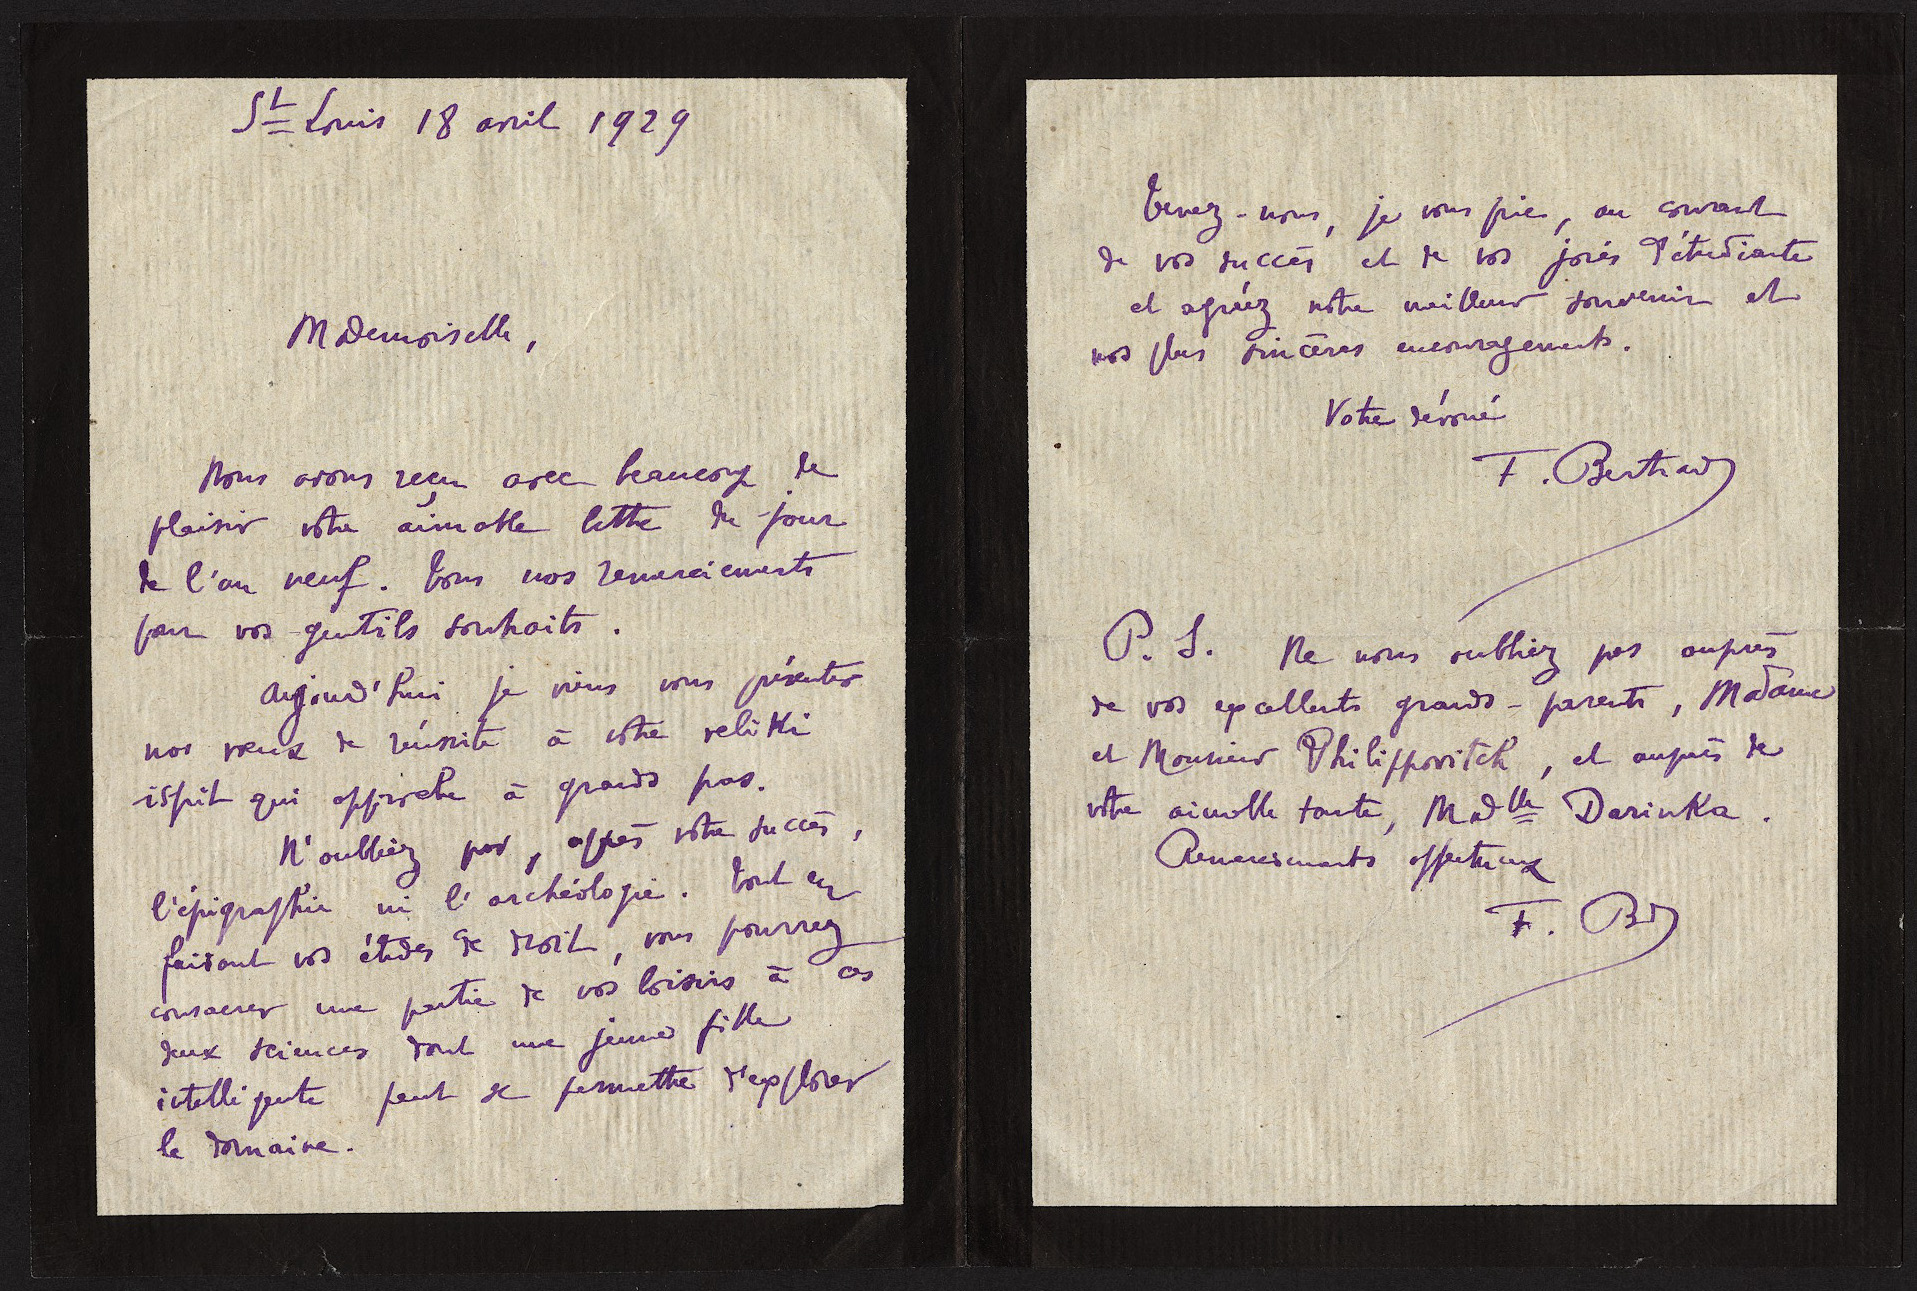 St Louis 18 avril 1929
Mademoiselle,
Nous avons reçu avec beaucoup de
plaisir votre aimable lettre du jour
de l'an neuf. Tous nos remerciements
pour vos gentils souhaits.
Aujourd'hui je viens vous présenter
nos vœux de réussite à votre veliki
ispit qui approche à grands pas.
N'oubliez pas, après votre succès,
l'épigraphie ni l'archéologie. Tout en
faisant vos études de droit, vous pourrez
consacrer une partie de vos loisirs à ces
deux sciences dont une jeune fille
intelligente peut se permettre d'explorer
le domaine.
Tenez-nous, je vous prie, au courant
de vos succès et de vos joies d'étudiante
et agréez notre meilleur souvenir et
nos plus sincères encouragements.
Votre dévoué
F. Bertrand
P. S. Ne nous oubliez pas auprès
de vos excellents grands-parents, Madame
et Monsieur Philippovitch, et auprès de
votre aimable tante, Madlle Darinka.
Remerciements affectueux
F. Bd